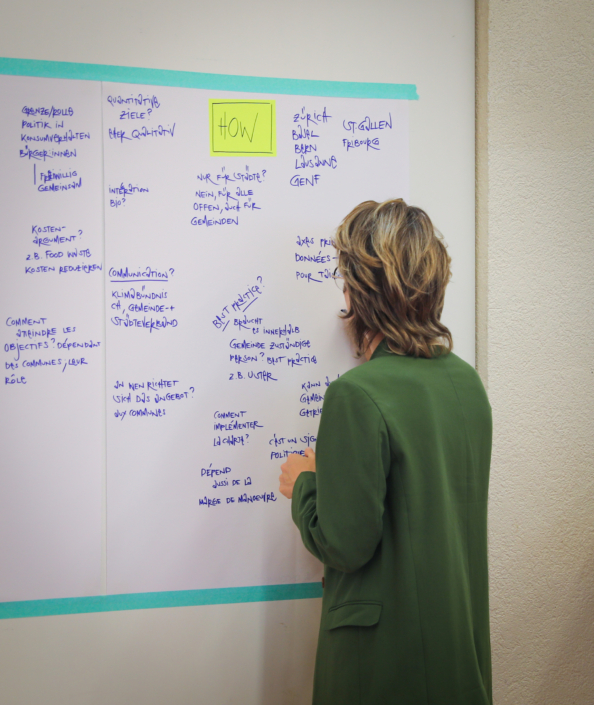 GRENZE/ROLLE
POLITIK IN
KONSUMVERHALTEN
BÜRGERINNEN
FREIWILLIG
GEMEINSAM
KOSTEN-
ARGUMENT?
Z.B. FOOD WASTE
KOSTEN REDUZIEREN
COMMENT
ATTEINDRE LES
OBJECTIFS? DÉPENDANT
DES COMMUNES, LEUR
RÔLE
QUANTITATIVE
ZIELE?
EHER QUALITATIV
INTEGRATION
BIO?
COMMUNICATION?
KLIMABÜNDNIS
CH, GEMEINDE-+
STÄDTEVERBAND
AN WEN RICHTET
SICH DAS ANGEBOT?
AUX COMMUNES
HOW
NUR FÜR STÄDTE?
NEIN, FÜR ALLE
OFFEN, AUCH FÜR
GEMEINDEN
BEST PRACTICE?
BRAUCHT
ES INNERHALB
GEMEINDE ZUSTÄNDIGE
PERSON? BEST PRACTICE
Z.B. USTER
COMMENT
IMPLÉMENTER
LA CHARTE?
DÉPEND
AUSSI DE LA
MARGE DE MANOEUVRE
ZÜRICH
BASEL
BERN
LAUSANNE
GENF
ST. GALLEN
FRIBOURG
AXES
DONNÉES
POUR
KANN
C'EST UN